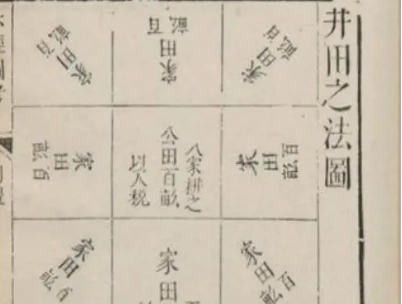 井田之法圖
家田百畝
家田百畝
家田百畝
家田百畝
八家耕之
公田百畝
以入稅
家田百畝
家田百畝
家田
家田百畝